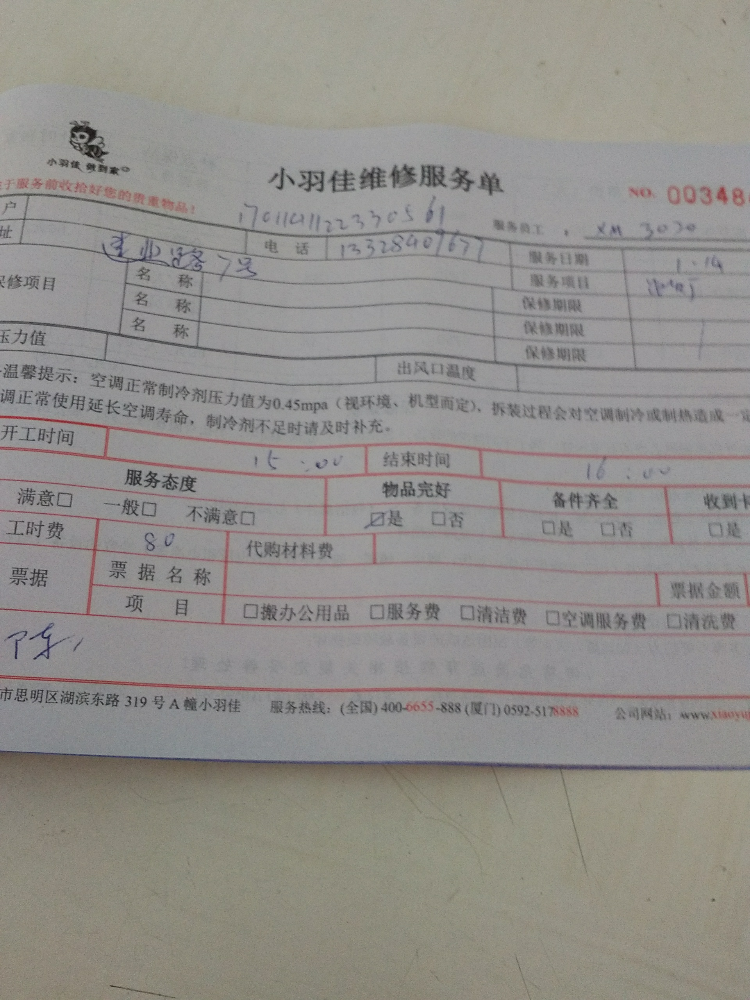 小羽佳 做到家
小羽佳维修服务单
NO. 00348
于服务前收拾好您的贵重物品!
17011411122330561
服务员工: XM 3030
户
电 话 13328409677
服务日期 1.14
址 7号
服务项目
保修项目
名 称
保修期限
名 称
保修期限
名 称
保修期限
压力值
出风口温度
温馨提示:空调正常制冷剂压力值为0.45mpa(视环境、机型而定),拆装过程会对空调制冷或制热造成一定
调正常使用延长空调寿命,制冷剂不足时请及时补充。
开工时间 15:00 结束时间 16:00
服务态度 物品完好 备件齐全 收到卡
满意□ 一般□ 不满意□ ☑是 □否 □是 □否 □是
工时费 80 代购材料费
票据 票据名称 票据金额
项 目 □搬办公用品 □服务费 □清洁费 □空调服务费 □清洗费
市思明区湖滨东路 319 号 A 幢小羽佳 服务热线:(全国) 400-6655-888 (厦门) 0592-5178888 公司网站:www.xiaoyu